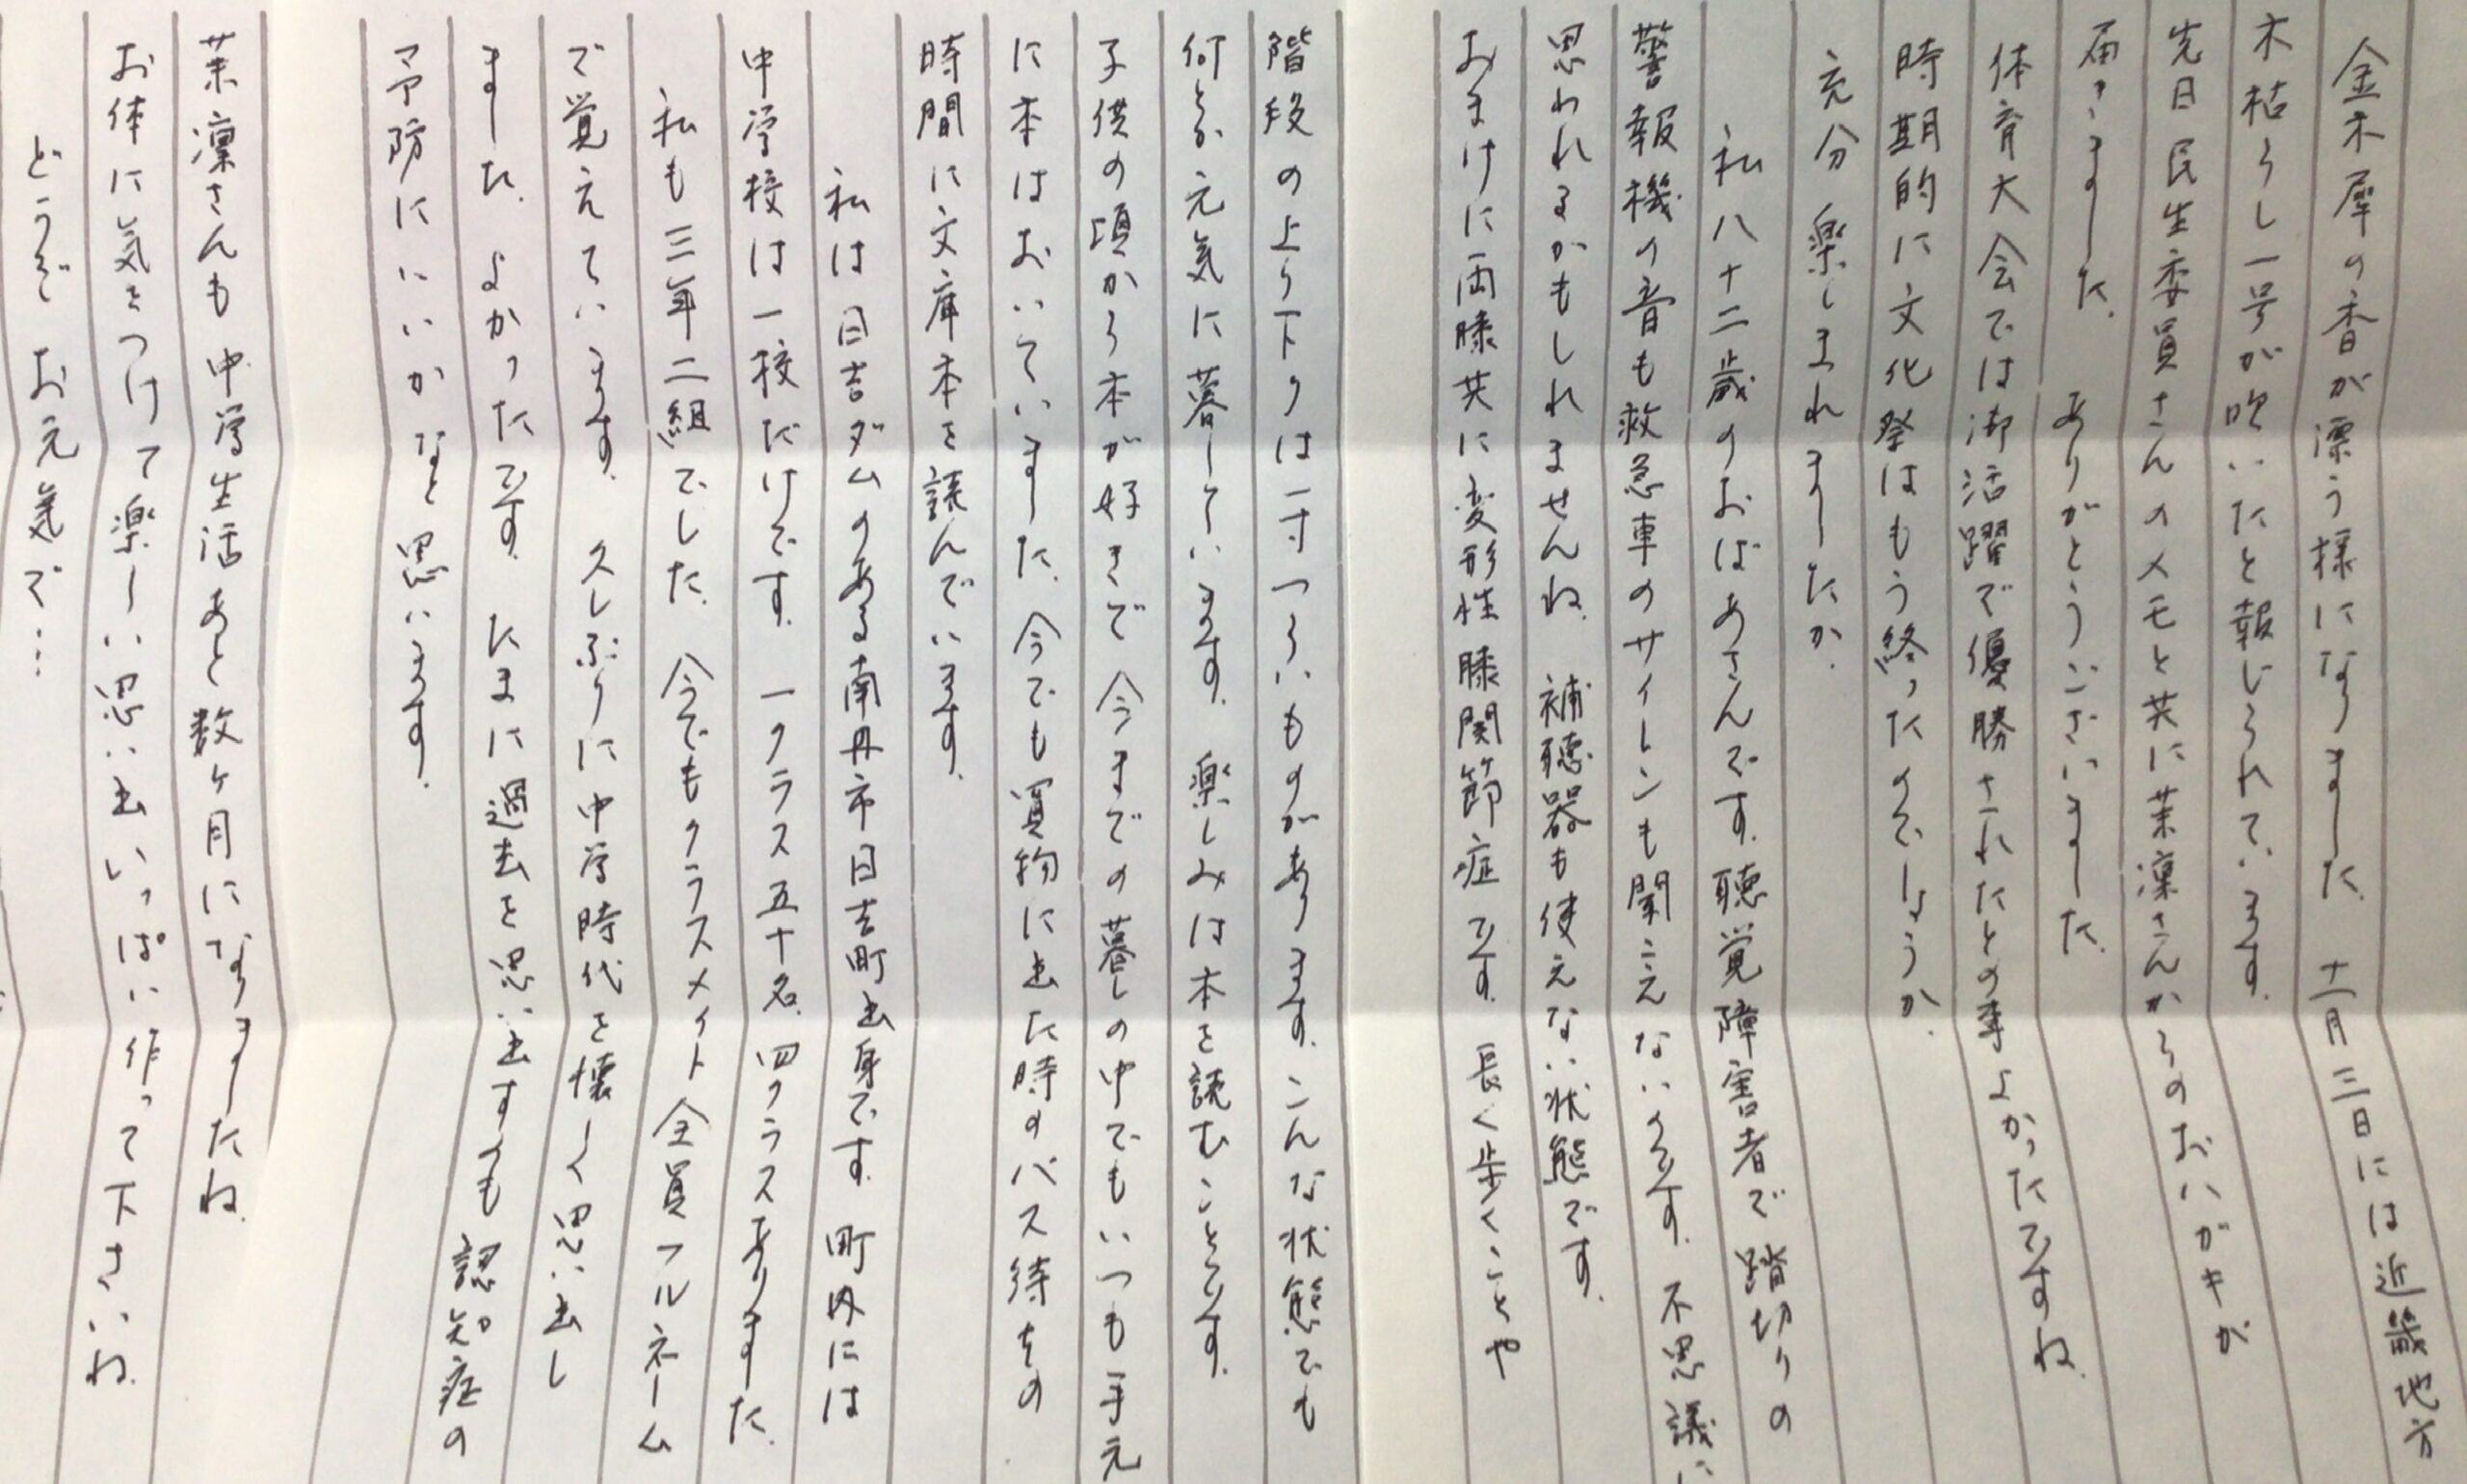 金木犀の香が漂う様になりました。十一月三日には近畿地方
木枯らし一号が吹いたと報じられています。
先日民生委員さんのメモと共に茉凜さんからのおハガキが
届きました。ありがとうございました。
体育大会では御活躍で優勝されたとの事よかったですね。
時期的に文化祭はもう終ったのでしょうか。
充分楽しまれましたか。
私八十二歳のおばあさんです。聴覚障害者で踏切りの
警報機の音も救急車のサイレンも聞こえないのです。不思議に
思われるかもしれませんね。補聴器も使えない状態です。
おまけに両膝共に変形性膝関節症です。長く歩くことや
階段の上り下りは一寸つらいものがあります。こんな状態でも
何とか元気に暮しています。楽しみは本を読むことです。
子供の頃から本が好きで今までの暮しの中でもいつも手元
に本はおいていました。今でも買物に出た時のバス待ちの
時間に文庫本を読んでいます。
私は日吉ダムのある南丹市日吉町出身です。町内には
中学校は一校だけです。一クラス五十名四クラスありました。
私も三年二組でした。今でもクラスメイト全員フルネーム
で覚えています。久しぶりに中学時代を懐しく思い出し
ました。よかったです。たまに過去を思い出すのも認知症の
予防にいいかなと思います。
茉凜さんも中学生活あと数ヶ月になりましたね。
お体に気をつけて楽しい思い出いっぱい作って下さいね。
どうぞお元気で…